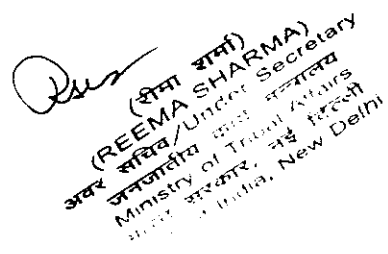 (रीमा शर्मा)
(REEMA SHARMA)
अवर सचिव/Under Secretary
जनजातीय कार्य मन्त्रालय
Ministry of Tribal Affairs
सरकार, नई दिल्ली
India, New Delhi